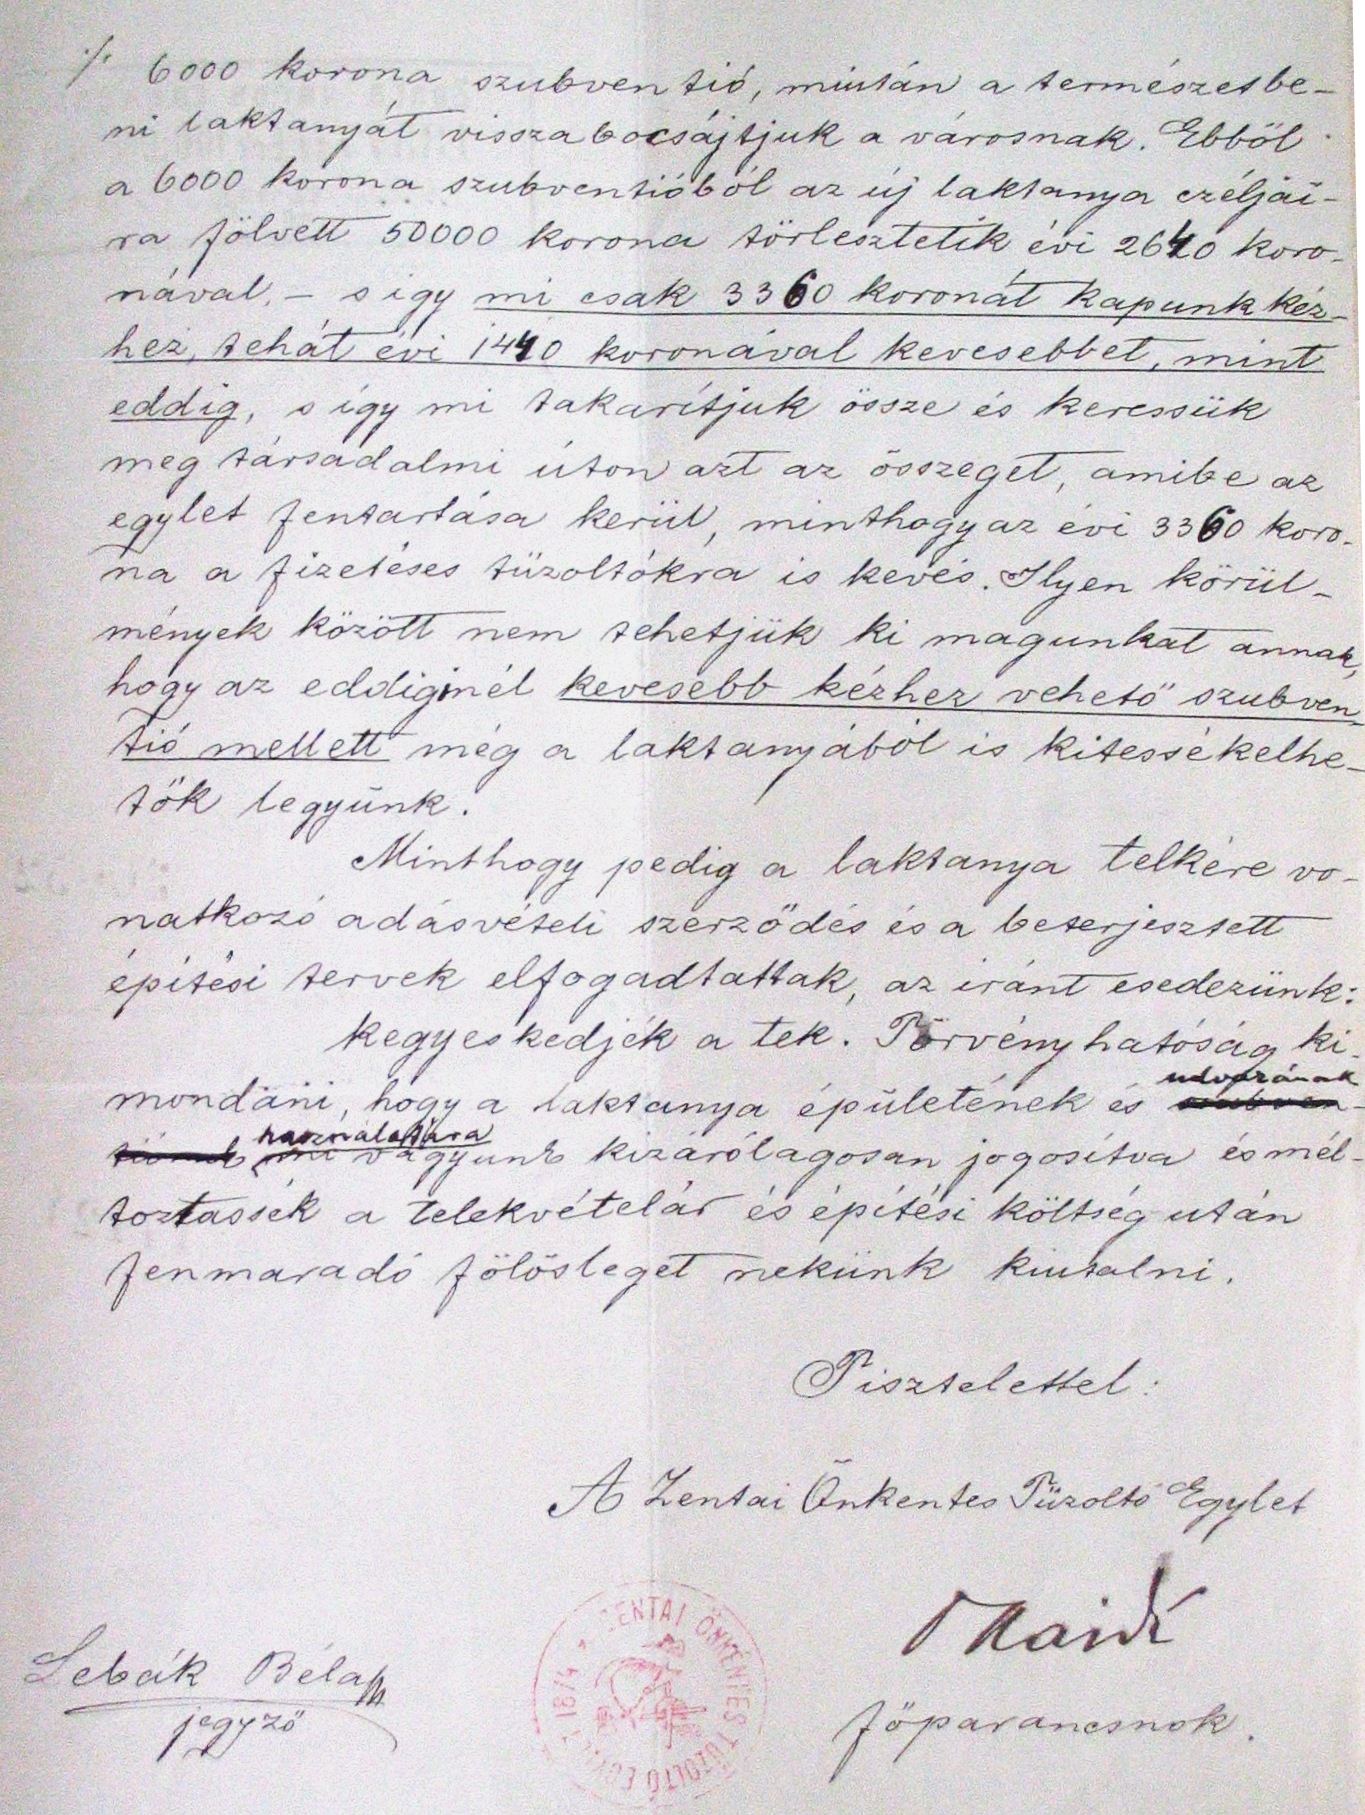 ./. 6000 korona szubventió, miután a természetbe-
ni laktanyát visszabocsájtjuk a városnak. Ebből
a 6000 korona szubventióból az új laktanya czéljai-
ra fölvett 50000 korona törlesztetik évi 2640 koro-
nával, – s igy mi csak 3360 koronát kapunk kéz-
hez, tehát évi 1440 koronával kevesebbet, mint
eddig, s így mi takarítjuk össze és keressük
meg társadalmi úton azt az összeget, amibe az
egylet fentartása kerül, minthogy az évi 3360 koro-
na a fizetéses tüzoltókra is kevés. Ilyen körül-
mények között nem tehetjük ki magunkat annak,
hogy az eddiginél kevesebb kézhez vehető szubven-
tió mellett még a laktanyából is kitessékelhe-
tők legyünk.
Minthogy pedig a laktanya telkére vo-
natkozó adásvételi szerződés és a beterjesztett
építési tervek elfogadtattak, az iránt esedezünk:
kegyeskedjék a tek. Törvényhatóság ki-
mondani, hogy a laktanya épületének és udvarának
használatára mi vagyunk kizárólagosan jogosítva és mél-
toztassék a telekvételár és építési költség után
fenmaradó fölösleget nekünk kiutalni.
Tisztelettel:
A Zentai Önkentes Tüzoltó Egylet
Lebák Béla
jegyző
ZENTAI ÖNKÉNTES TŰZOLTÓ EGYLET 1874
főparancsnok.